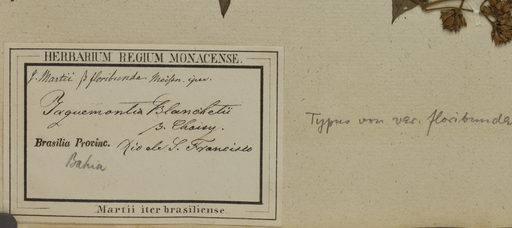 HERBARIUM REGIUM MONACENSE.
J. Martii β floribunda Meissn. ipse.
Jaquemontia Blanchetii
β. Choisy.
Brasilia Provinc. Rio de S. Francisco
Bahia
Martii iter brasiliense.
Typus von var. floribunda